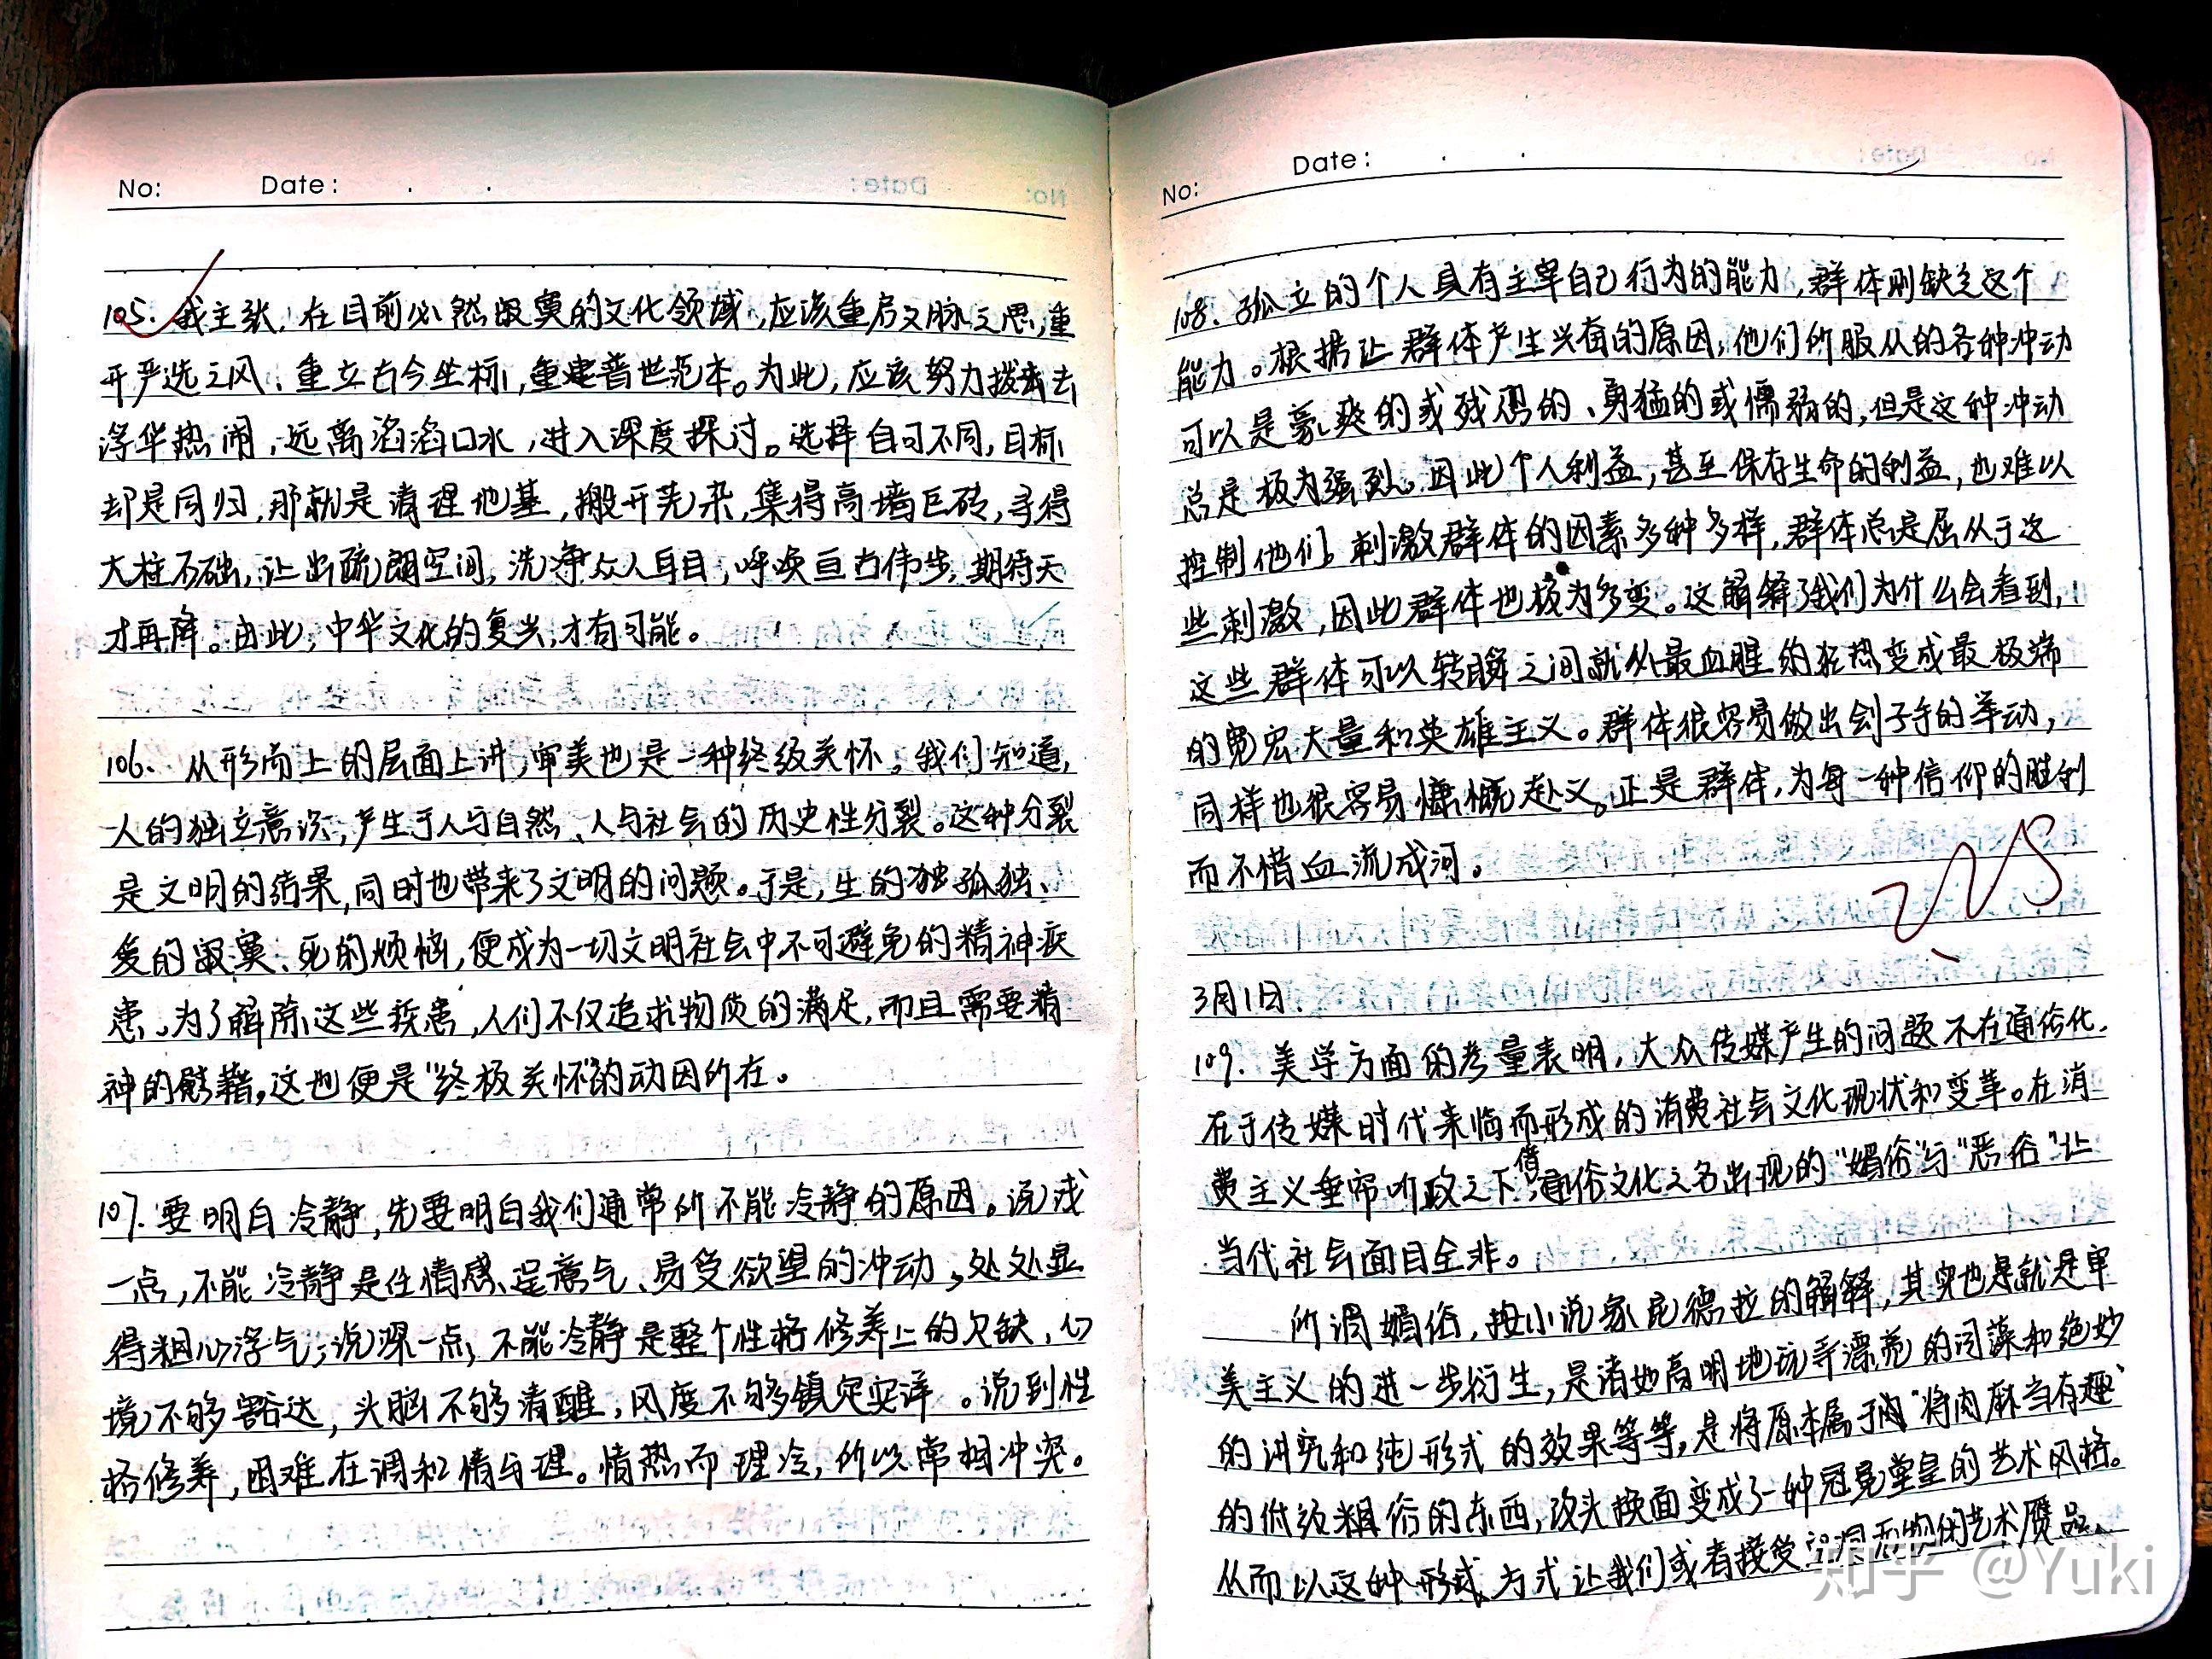 No: Date: . .
105. 我主张,在目前必然寂寞的文化领域,应该重启文脉之思,重
开严选之风、重立古今坐标,重建普世范本。为此,应该努力拨去
浮华热闹,远离滔滔口水,进入深度探讨。选择自可不同,目标
却是同归,那就是清理地基,搬开芜杂,集得高墙巨砖,寻得
大柱石础,让出疏朗空间,洗净众人耳目,呼唤亘古伟步,期待天
才再降。由此,中华文化的复兴,才有可能。
106. 从形而上的层面上讲,审美也是一种终级关怀。我们知道,
人的独立意识,产生于人与自然、人与社会的历史性分裂。这种分裂
是文明的结果,同时也带来了文明的问题。于是,生的独孤独、
爱的寂寞、死的烦恼,便成为一切文明社会中不可避免的精神疾
患。为了解除这些疾患,人们不仅追求物质的满足,而且需要精
神的慰藉。这也便是"终极关怀"的动因所在。
107. 要明白冷静,先要明白我们通常所不能冷静的原因。说浅
一点,不能冷静是任情感、逞意气、易受欲望的冲动,处处显
得粗心浮气;说深一点,不能冷静是整个性格修养上的欠缺,心
境不够豁达,头脑不够清醒,风度不够镇定安详。说到性
格修养,困难在调和情与理。情热而理冷,所以常相冲突。
No: Date: . .
108. 孤立的个人具有主宰自己行为的能力,群体则缺乏这个
能力。根据让群体产生兴奋的原因,他们所服从的各种冲动
可以是豪爽的或残忍的、勇猛的或懦弱的,但是这种冲动
总是极为强烈。因此个人利益,甚至保存生命的利益,也难以
控制他们。刺激群体的因素多种多样,群体总是屈从于这
些刺激,因此群体也极为多变。这解释了我们为什么会看到,
这些群体可以转瞬之间就从最血腥的狂热变成最极端
的宽宏大量和英雄主义。群体很容易做出刽子手的举动,
同样也很容易慷慨赴义。正是群体,为每一种信仰的胜利
而不惜血流成河。
3月1日.
109. 美学方面的考量表明,大众传媒产生的问题不在通俗化,
在于传媒时代来临而形成的消费社会文化现状和变革。在消
费主义垂帘听政之下,借通俗文化之名出现的"媚俗"与"恶俗"让
当代社会面目全非。
所谓媚俗,按小说家昆德拉的解释,其实也是就是审
美主义的进一步衍生,是诸如高明地玩弄漂亮的词藻和绝妙
的讲究和纯形式的效果等等,是将原本属于肉"将肉麻当有趣"
的低级粗俗的东西,改头换面变成了一种冠冕堂皇的艺术风格。
从而以这种形式、方式让我们或者接受空洞无物的艺术赝品、
知乎 @Yuki